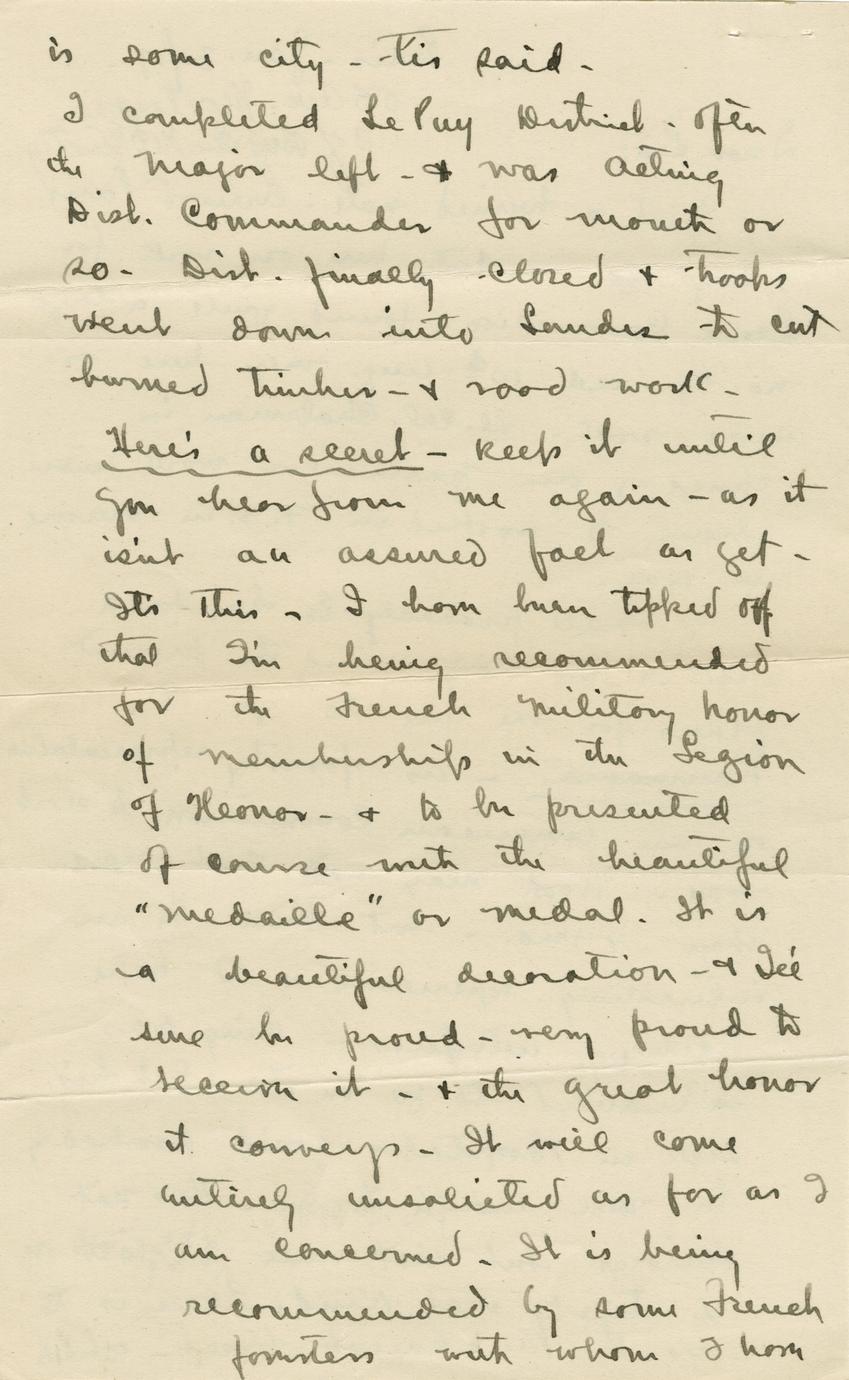 is some city - 'tis said -
I completed Le Puy District - after
the Major left - & was acting
Dist. Commander for month or
so - Dist. finally closed & troops
went down into Landes to cut
burned timber - & road work -
Here's a secret - keep it until
you hear from me again - as it
isn't an assured fact as yet -
It's this - I have been tipped off
that I'm being recommended
for the French Military honor
of membership in the Legion
of Heonor - & to be presented
of course with the beautiful
"medaille" or medal. It is
a beautiful decoration - & I'll
sure be proud - very proud to
receive it - & the great honor
it conveys - It will come
entirely unsolicited as far as I
am concerned. It is being
recommended by some French
foresters with whom I have